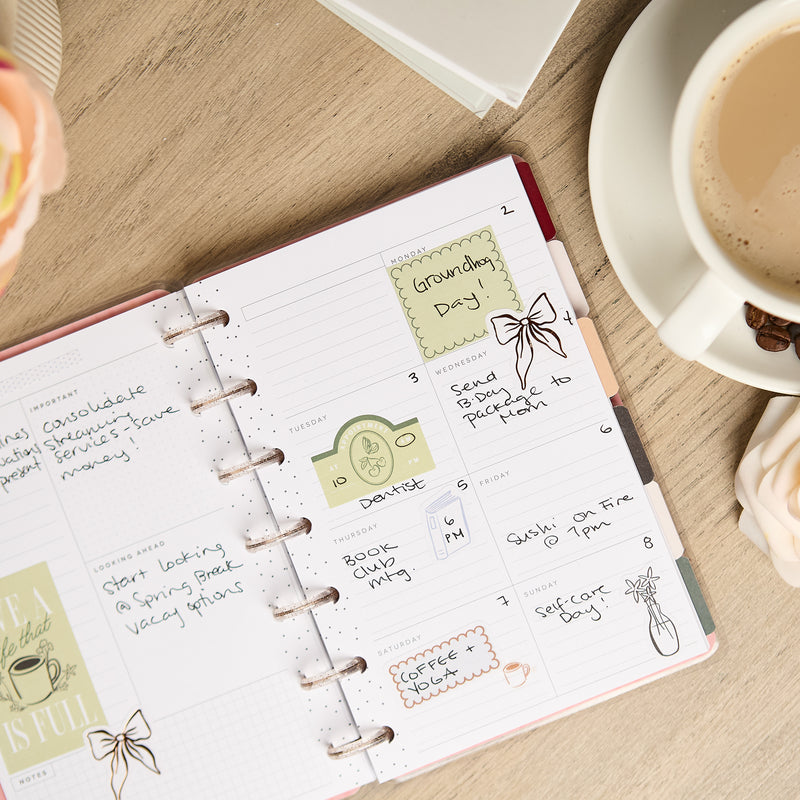 IMPORTANT
consolidate
streaming
services, save
money!
present
LOOKING AHEAD
Start looking
@ Spring Break
vacay options
that
IS FULL
NOTES
2
MONDAY
Groundhog
Day!
3
TUESDAY
APPOINTMENT
AT
10
PM
Dentist
4
WEDNESDAY
Send
B-Day
package to
Mom
5
THURSDAY
BOOK
club
mtg.
6
PM
6
FRIDAY
Sushi on Fire
@ 7pm
7
SATURDAY
COFFEE +
YOGA
8
SUNDAY
Self-care
Day!